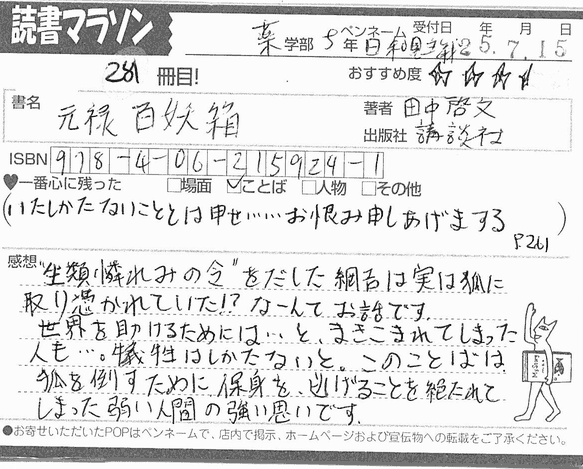 読書マラソン
薬学部 5年 ペンネーム 受付日 年 月 日
25.7.15
281 冊目! おすすめ度 ☆☆☆☆
書名 元禄百妖箱
著者 田中啓文
出版社 講談社
ISBN 978-4-06-215924-1
♥一番心に残った □場面 ☑ことば □人物 □その他
(いたしかたないこととは申せ……お恨み申しあげまする)
P.261
感想 "生類憐れみの令"をだした綱吉は実は狐に
取り憑かれていた!? なーんてお話です。
世界を助けるためには…と、まきこまれてしまった
人も…。犠牲はしかたないと。このことばは
狐を倒すために保身を、逃げることを絶たれて
しまった弱い人間の強い思いです。
●お寄せいただいたPOPはペンネームで、店内で掲示、ホームページおよび宣伝物への転載をご了承ください。